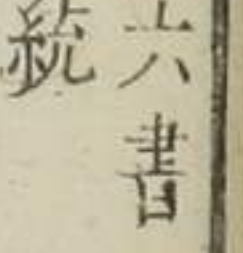 六書
統